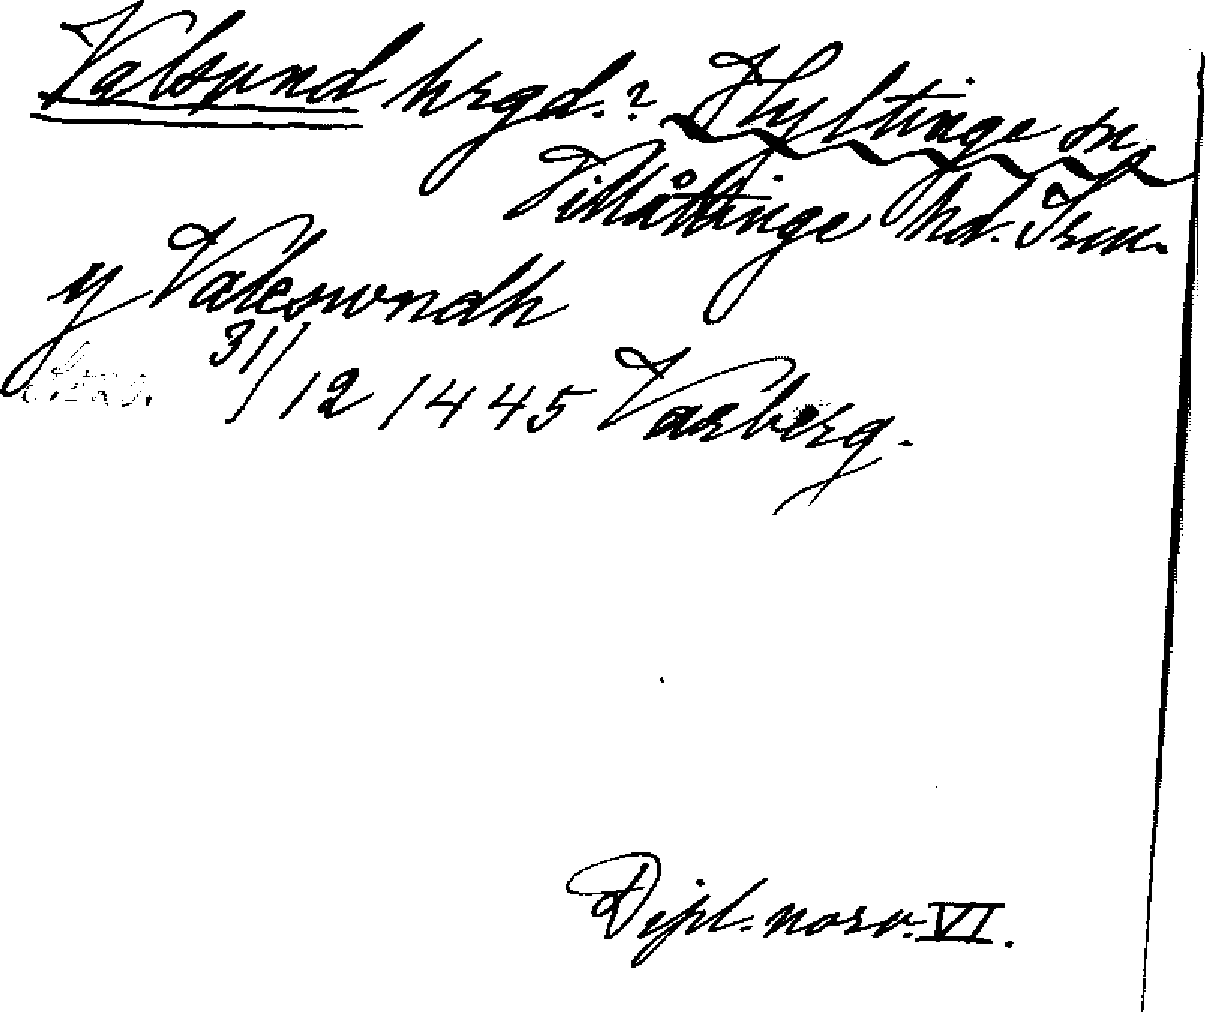 Valsund hrgd.? Hyltinge sn,
Villåttinge hd. Srm.
y Valeswndh
31/12 1445 Varberg.
Dipl. norv. VI.